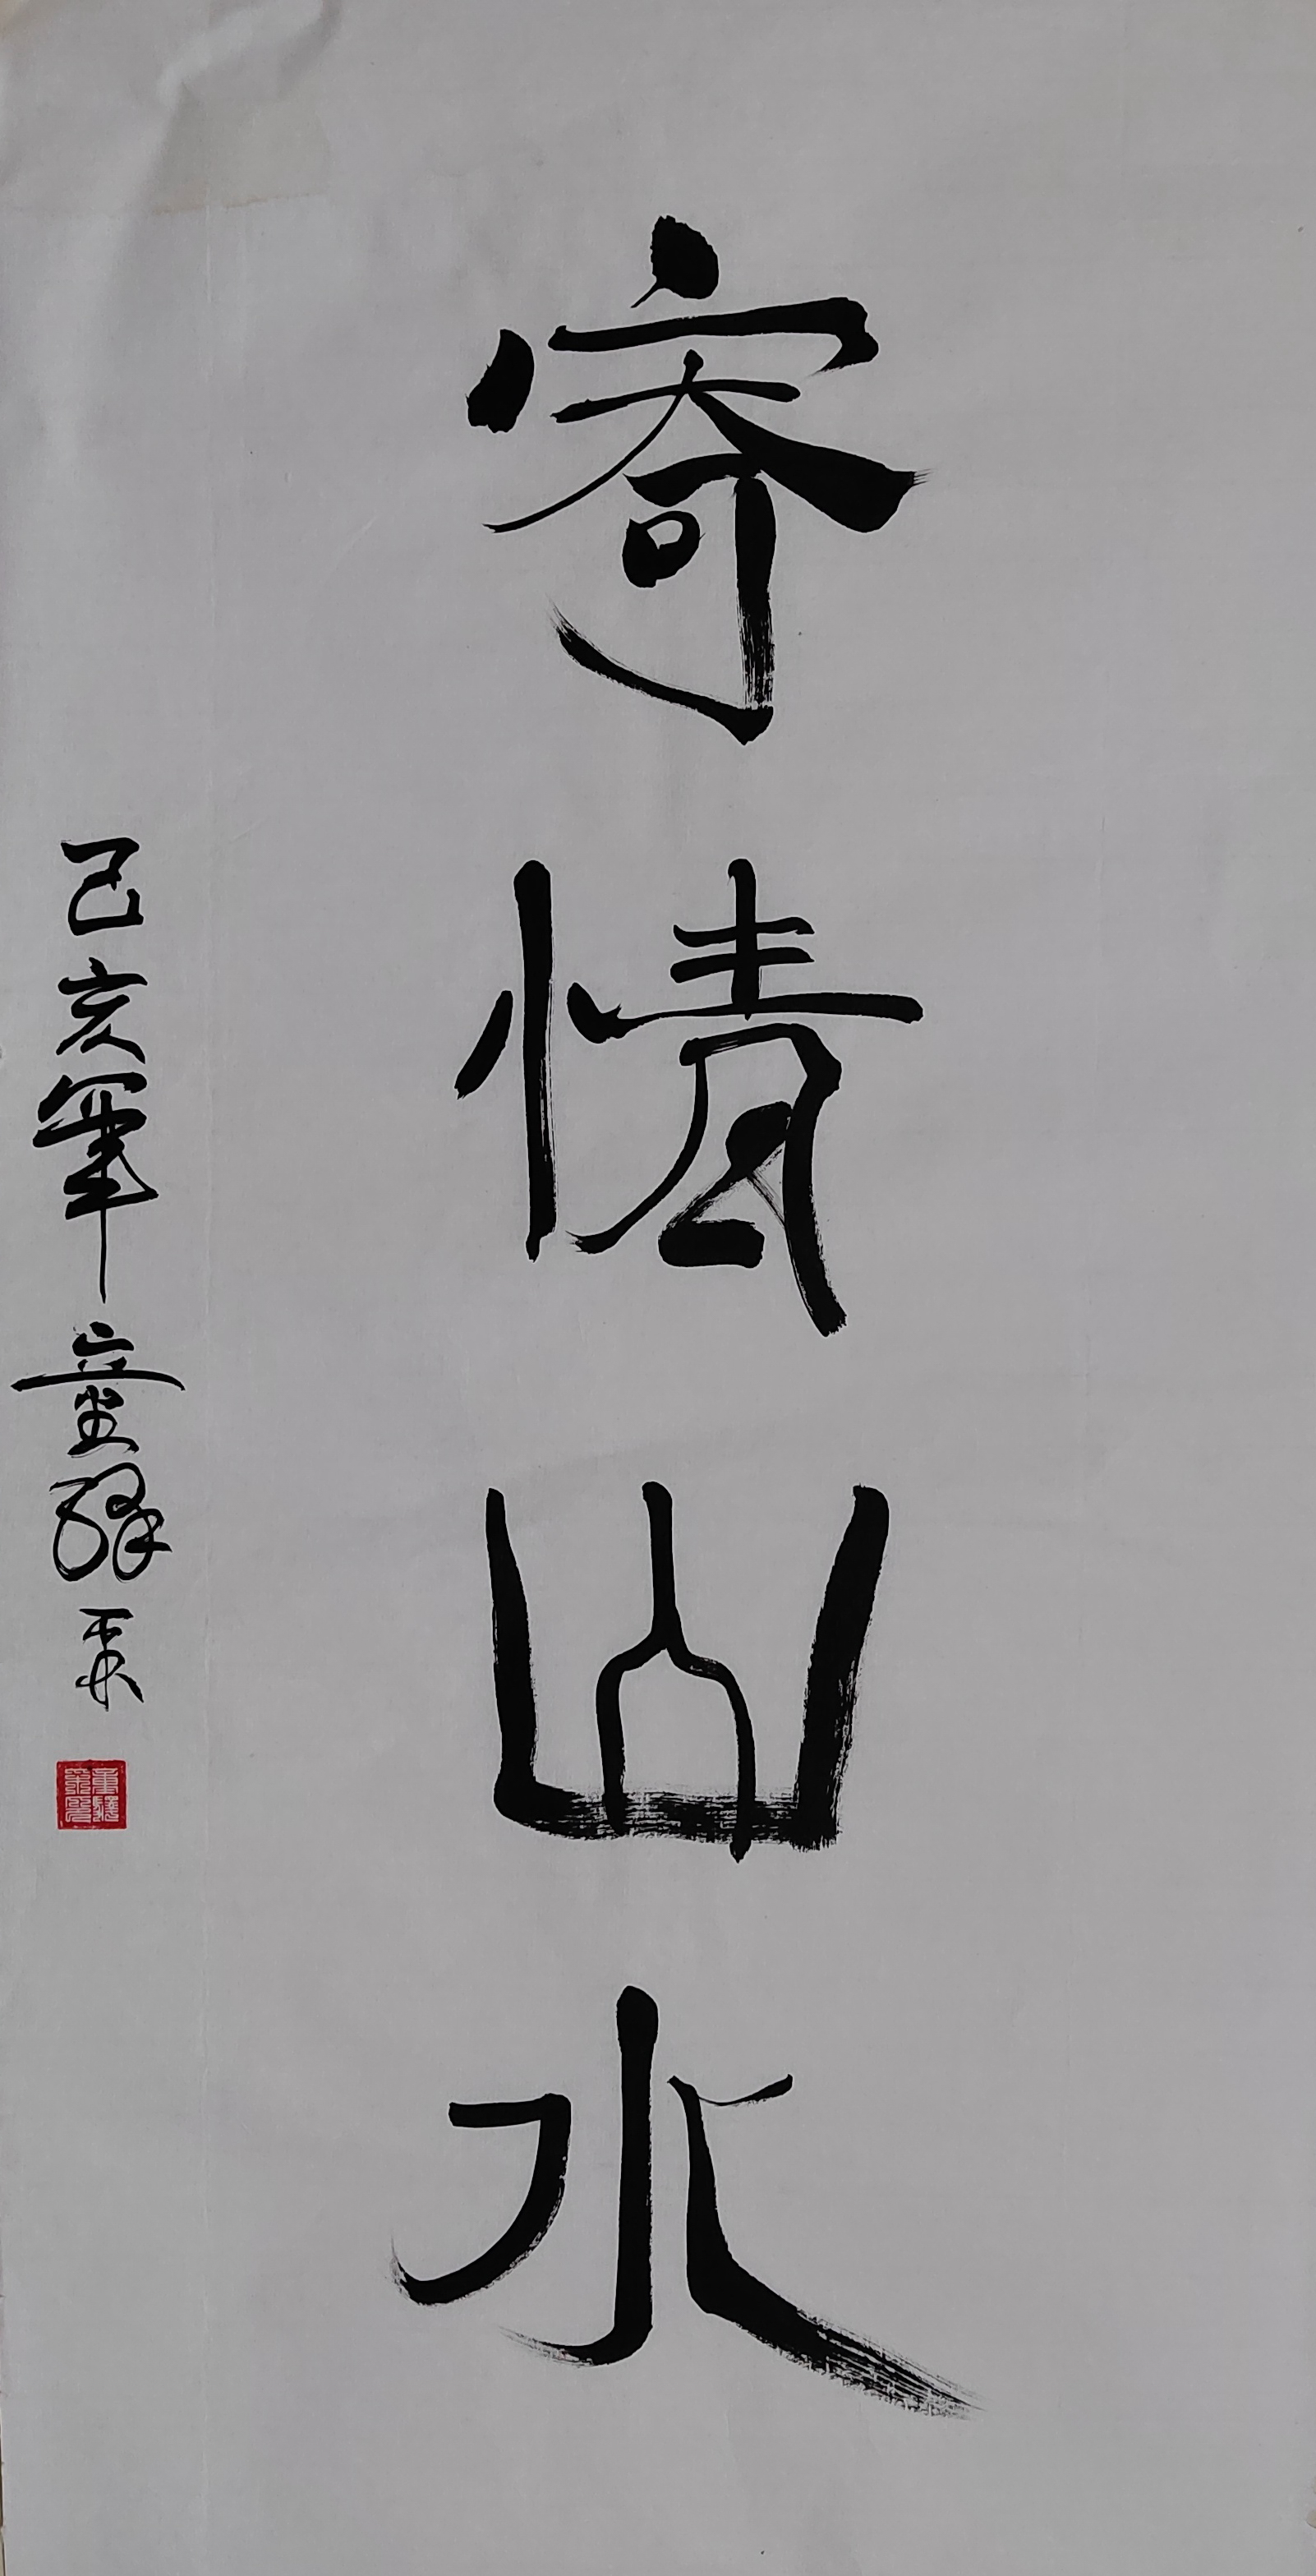 寄情山水
己亥年童驿采